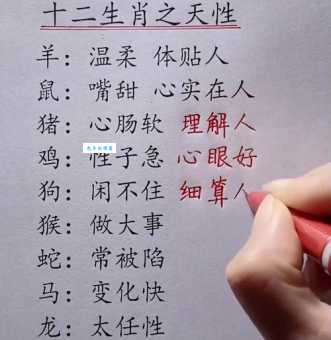 十二生肖之天性
羊：温柔 体贴人
鼠：嘴甜 心实在人
猪：心肠软 理解人
鸡：性子急 心眼好
狗：闲不住 细算人
猴：做大事
蛇：常被陷
马：变化快
龙：太任性